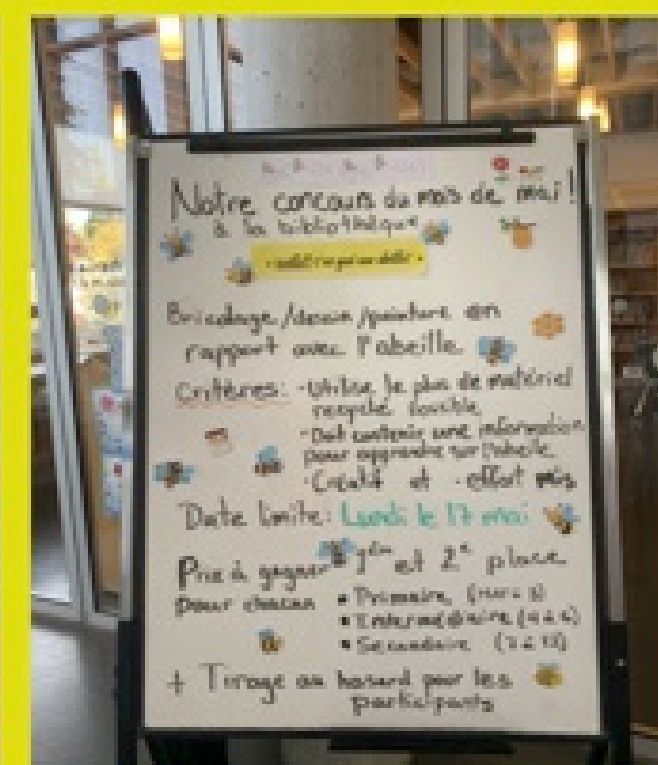 Notre concours du mois de mai!
à la bibliothèque
Bricolage/dessin/peinture en
rapport avec l'abeille
Critères: -Utilise le plus de matériel
recyclé possible
-Doit contenir une information
pour apprendre sur l'abeille
-Créatif et -effort mis
Date limite: Lundi le 17 mai
Prix à gagner et 2e place
pour chacun • Primaire
• Intermédiaire (4 à 6)
• Secondaire (7 à 12)
+ Tirage au hasard pour les
participants